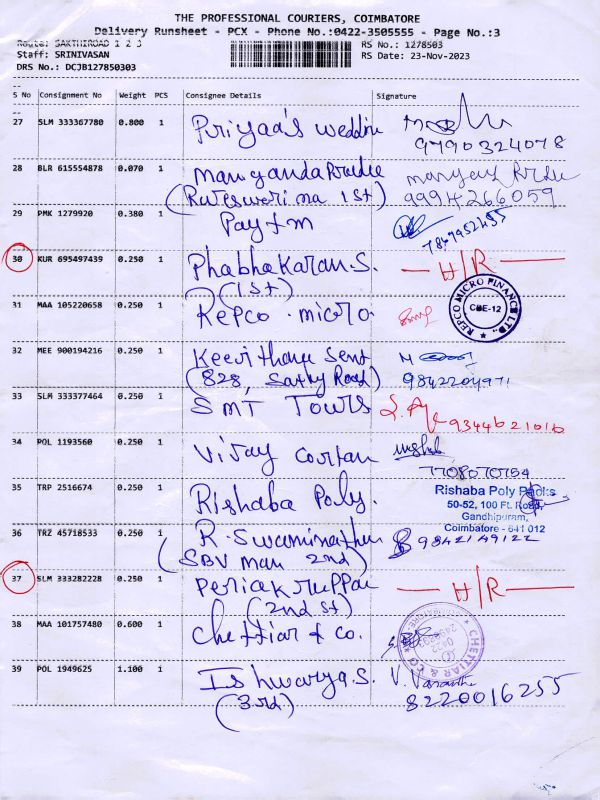 THE PROFESSIONAL COURIERS, COIMBATORE
Delivery Runsheet - PCX - Phone No.:0422-3505555 - Page No.:3
Route: SAKTHIROAD 1 2 3
RS No.: 1278503
Staff: SRINIVASAN
RS Date: 23-Nov-2023
DRS No.: DCJB127850303
S No Consignment No Weight PCS Consignee Details Signature
27 SLM 333367780 0.800 1 Priyaa's
9790324078
28 BLR 615554878 0.070 1
1st)
9994266059
29 PMK 1279920 0.380 1 Paytm
30 KUR 695497439 0.250 1 Phabhakaran.S. H/R
(1st)
31 MAA 105220658 0.250 1 Repco. micro.
REPCO MICRO FINANCE LTD
CBE-12
32 MEE 900194216 0.250 1
(828, Sathy Road)
33 SLM 333377464 0.250 1 SMT Tours
9344621010
34 POL 1193560 0.250 1 Vijay
7708070154
35 TRP 2516674 0.250 1 Rishaba Poly.
Rishaba Poly Packs
50-52, 100 Ft. Road,
Gandhipuram,
Coimbatore - 641 012
36 TRZ 45718533 0.250 1 R. Swaminathan 9842149122
(SBV man 2nd)
37 SLM 333282228 0.250 1 Periakruppan H/R
(2nd st)
38 MAA 101757480 0.600 1 Chettiar & Co.
CHETTIAR & CO
39 POL 1949625 1.100 1 Ishwarya.S.
(3rd)
8220016255